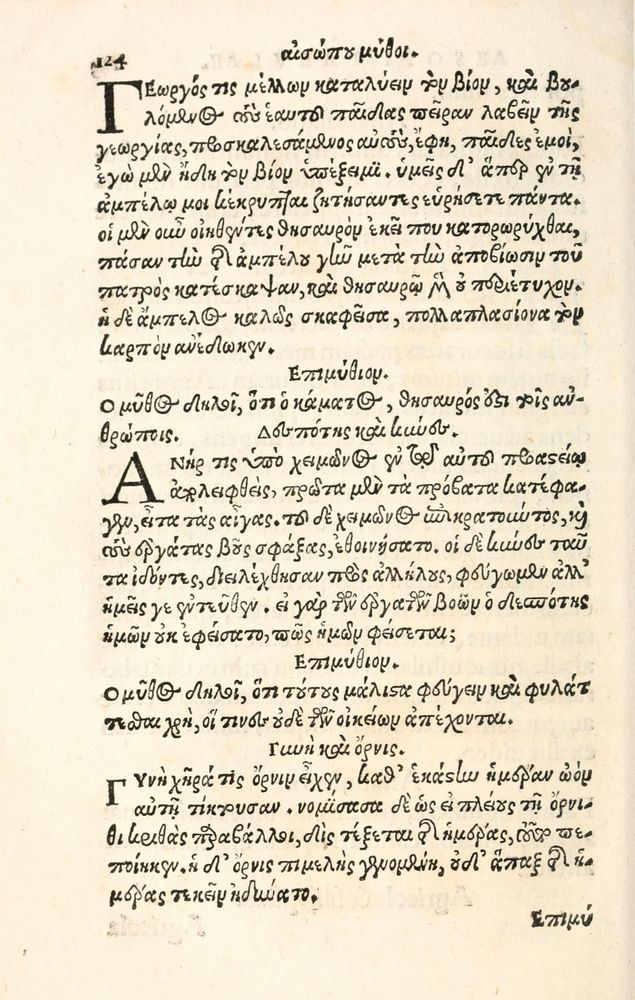 124
αἰσώπου μῦθοι.
Γεωργός τις μέλλων καταλύειν τὸν βίον, καὶ βου-
λόμενος τοὺς ἑαυτοῦ παῖδας πεῖραν λαβεῖν τῆς
γεωργίας, προσκαλεσάμενος αὐτοὺς, ἔφη, παῖδες ἐμοὶ,
ἐγὼ μὲν ἤδη τὸν βίον ὑπέξειμι. ὑμεῖς δ' ἅπερ ἐν τῇ
ἀμπέλῳ μοι κέκρυπται ζητήσαντες εὑρήσετε πάντα.
οἱ μὲν οὖν οἰηθέντες θησαυρὸν ἐκεῖ που κατορωρύχθαι,
πᾶσαν τὴν τῆς ἀμπέλου γῆν μετὰ τὴν ἀποβίωσιν τοῦ
πατρὸς κατέσκαψαν, καὶ θησαυρῷ μὲν οὐ περιέτυχον.
ἡ δὲ ἄμπελος καλῶς σκαφεῖσα, πολλαπλασίονα τὸν
καρπὸν ἀνέδωκεν.
Επιμύθιον.
Ο μῦθος δηλοῖ, ὅτι ὁ κάματος, θησαυρός ἐστι τοῖς ἀν-
θρώποις.
Δεσπότης καὶ κύνες.
Ανήρ τις ὑπὸ χειμῶνος ἐν τῷ αὐτοῦ προαστείῳ
ἀποληφθεὶς, πρῶτα μὲν τὰ πρόβατα κατέφα-
γεν, εἶτα τὰς αἶγας. τοῦ δὲ χειμῶνος ἐπικρατοῦντος, καὶ
τοὺς ἐργάτας βοῦς σφάξας, ἐθοινήσατο. οἱ δὲ κύνες ταῦ
τα ἰδόντες, διελέχθησαν πρὸς ἀλλήλους, φεύγωμεν ἀλλ'
ἡμεῖς γε ἐντεῦθεν. εἰ γὰρ τῶν ἐργατῶν βοῶν ὁ δεσπότης
ἡμῶν οὐκ ἐφείσατο, πῶς ἡμῶν φείσεται;
Επιμύθιον.
Ο μῦθος δηλοῖ, ὅτι τούτους μάλιστα φεύγειν καὶ φυλάτ
τεσθαι χρὴ, οἵ τινες οὐδὲ τῶν οἰκείων ἀπέχονται.
Γυνὴ καὶ ὄρνις.
Γυνὴ χῆρά τις ὄρνιν εἶχεν, καθ' ἑκάστην ἡμέραν ὠὸν
αὐτῇ τίκτουσαν. νομίσασα δὲ ὡς εἰ πλείους τῇ ὄρνι-
θι κριθὰς παραβάλλοι, δὶς τέξεται τῆς ἡμέρας, τοῦτο πε-
ποίηκεν. ἡ δ' ὄρνις πιμελὴς γενομένη, οὐδ' ἅπαξ τῆς ἡ-
μέρας τεκεῖν ἠδύνατο.
Επιμύ